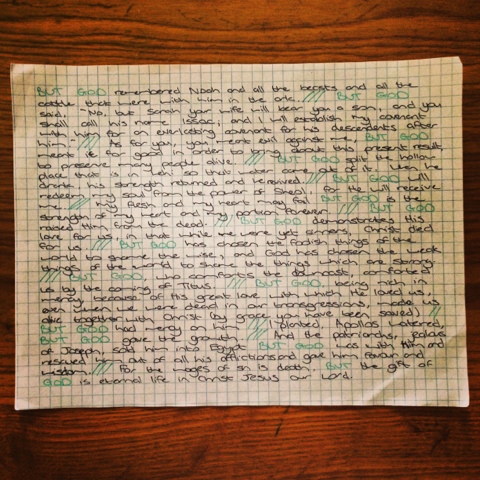 BUT GOD remembered Noah and all the beasts and all the
cattle that were with him in the ark. //// BUT GOD
said, "No, but Sarah your wife will bear you a son, and you
shall call his name Isaac; and I will establish my covenant
with him for an everlasting covenant for his descendants after
him." //// As for you, you meant evil against me, BUT GOD
meant it for good in order to bring about this present result
to preserve many people alive. //// BUT GOD split the hollow
place that is in Lehi so that water came out of it. When he
drank, his strength returned and he revived. //// BUT GOD will
redeem my soul from the power of Sheol, for He will receive
me. //// My flesh and my heart may fail BUT GOD is the
strength of my heart and my portion forever. //// BUT GOD
raised Him from the dead. //// BUT GOD demonstrates His
love for us, in that while we were yet sinners, Christ died
for us. //// BUT GOD has chosen the foolish things of the
world to shame the wise, and God has chosen the weak
things of the world to shame the things which are strong.
//// BUT GOD, who comforts the downcast, comforted
us by the coming of Titus. //// BUT GOD being rich in
mercy, because of His great love with which He loved us,
even when we were dead in our transgressions made us
alive together with Christ (by grace you have been saved) //
BUT GOD had mercy on him //// I planted, Apollos watered,
BUT GOD gave the growth. //// And the patriarchs, jealous
of Joseph, sold him into Egypt; BUT GOD was with him and
rescued him out of all his afflictions and gave him favour and
wisdom. //// For the wages of sin is death, BUT the gift of
GOD is eternal life in Christ Jesus our Lord.